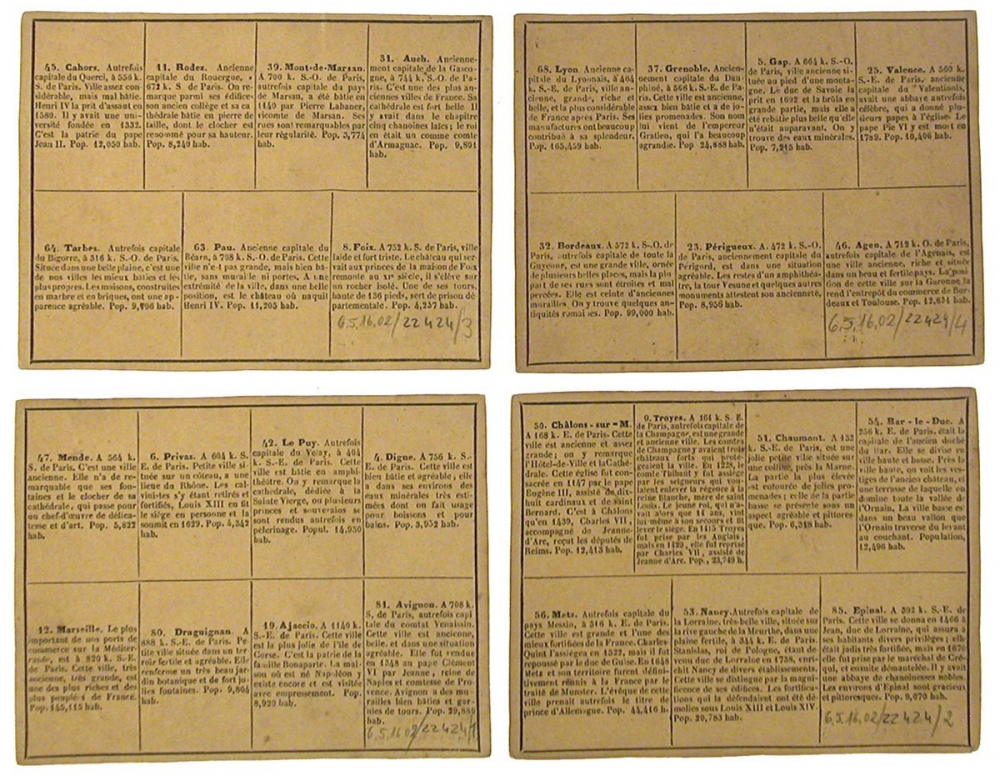 45. Cahors. Autrefois
capitale du Querci, à 556 k.
S. de Paris. Ville assez con-
sidérable, mais mal bâtie.
Henri IV la prit d'assaut en
1580. Il y avait une uni-
versité fondée en 1332.
C'est la patrie du pape
Jean II. Pop. 12,050 hab.
11. Rodez. Ancienne
capitale du Rouergue, à
672 k. S. de Paris. On re-
marque parmi ses édifices
son ancien collége et sa ca-
thédrale bâtie en pierre de
taille, dont le clocher est
renommé pour sa hauteur.
Pop. 8,240 hab.
39. Mont-de-Marsan.
A 700 k. S.-O. de Paris,
autrefois capitale du pays
de Marsan, a été bâtie en
1140 par Pierre Labaner,
vicomte de Marsan. Ses
rues sont remarquables par
leur régularié. Pop. 3,774
hab.
31. Auch. Ancienne-
ment capitale de la Gasco-
gne, à 744 k. S.-O. de Pa-
ris. C'est une des plus an-
ciennes villes de France. Sa
cathédrale est fort belle Il
y avait dans le chapitre
cinq chanoines laïcs; le roi
en était un comme comte
d'Armagnac. Pop. 9,801
hab.
64. Tarbes. Autrefois capitale
du Bigorre, à 816 k. S.-O. de Paris.
Située dans une belle plaine, c'est une
de nos villes les mieux bâties et les
plus propres. Les maisons, construites
en marbre et en briques, ont une ap-
parence agréable. Pop. 9,706 hab.
63. Pau. Ancienne capitale du
Béarn, à 798 k. S.-O. de Paris. Cette
ville n'est pas grande, mais bien bâ-
tie, sans muraille ni portes. A une
extrémité de la ville, dans une belle
position, est le château où naquit
Henri IV. Pop. 11,205 hab.
8. Foix. A 752 k. S. de Paris, ville
laide et fort triste. Le château qui ser-
vait aux princes de la maison de Foix
remonte au XIe siècle, il s'élève sur
un rocher isolé. Une de ses tours,
haute de 136 pieds, sert de prison dé-
partementale. Pop. 4,257 hab.
6.5.16.02/22424/3
68. Lyon. Ancienne ca-
pitale du Lyonnais, à 464
k. S.-E. de Paris, ville an-
cienne, grande, riche et
belle, et la plus considérable
de France après Paris. Ses
manufactures ont beaucoup
contribué à sa splendeur.
Pop. 165,459 hab.
37. Grenoble. Ancien-
nement capitale du Dau-
phiné, à 568 k. S.-E. de Pa-
ris. Cette ville est ancienne,
assez bien bâtie et a de jo-
lies promenades. Son nom
lui vient de l'empereur
Gratien, qui l'a beaucoup
agrandie. Pop 24,888 hab.
5. Gap. A 664 k. S.-O.
de Paris, ville ancienne si-
tuée au pied d'une monta-
gne. Le duc de Savoie la
prit en 1692 et la brûla en
grande partie, mais elle a
été rebâtie plus belle qu'elle
n'était auparavant. On y
trouve des eaux minérales.
Pop. 7,215 hab.
25. Valence. A 560 k.
S.-E. de Paris, autrefois
capital du Valentinois,
avait une abbaye autrefois
célèbre, qui a donné plu-
sieurs papes à l'église. Le
pape Pie VI y est mort en
1789. Pop. 10,406 hab.
32. Bordeaux. A 572 k. S.-O. de
Paris, autrefois capitale de toute la
Guyenne, est une grande ville, ornée
de plusieurs belles places, mais la plu-
part de ses rues sont étroites et mal
percées. Elle est ceinte d'anciennes
murailles. On y trouve quelques an-
tiquités romaines. Pop. 99,000 hab.
23. Périgueux. A. 472 k. S.-O.
de Paris, anciennement capitale du
Périgord, est dans une situation
agréable. Les restes d'un amphithéâ-
tre, la tour Vesune et quelques autres
monuments attestent son ancienneté.
Pop. 8,956 hab.
46. Agen. A 712 k. O. de Paris,
autrefois capitale de l'Agenais, est
une ville ancienne, riche et située
dans un beau et fertile pays. La posi-
tion de cette ville sur la Garonne la
rend l'entrepôt du commerce de Bor-
deaux et Toulouse. Pop. 12,631 hab.
6.5.16.02/22424/4
47. Mende. A 564 k.
S. de Paris. C'est une ville
ancienne. Elle n'a de re-
marquable que ses fon-
taines et le clocher de sa
cathédrale, qui passe pour
un chef-d'œuvre de délica-
tesse et d'art. Pop. 5,822
hab.
6. Privas. A 604 k. S.
E. de Paris. Petite ville si-
tuée sur un coteau, à une
lieue du Rhône. Les cal-
vinistes s'y étant retirés et
fortifiés, Louis XIII en fit
le siége en personne et la
soumit en 1629. Pop. 4,342
hab.
42. Le Puy. Autrefois
capitale du Velay, à 404
k. S.-E. de Paris. Cette
ville est bâtie en amphi-
théâtre. On y remarque la
cathédrale, dédiée à la
Sainte Vierge, où plusieurs
princes et souverains se
sont rendus autrefois en
pélerinage. Popul. 14,930
hab.
4. Digne. A 756 k. S.-
E. de Paris. Cette ville est
bien bâtie et agréable; elle
a dans ses environs des
eaux minérales très esti-
mées dont on fait usage
pour boissons et pour
bains. Pop. 3,932 hab.
12. Marseille. Le plus
important de nos ports de
commerce sur la Méditer-
ranée, est à 820 k. S.-E.
de Paris. Cette ville, très
ancienne, très grande, est
une des plus riches et des
plus peuplées de France.
Pop. 145,115 hab.
80. Draguignan. A
888 k. S.-E. de Paris. Pe-
tite ville située dans un ter-
roir fertile et agréable. Elle
renferme un très beau jar-
din botanique et de fort jo-
lies fontaines. Pop. 9,804
hab.
19. Ajaccio. A 1140 k.
S.-E. de Paris. Cette ville
est la plus jolie de l'île de
Corse. C'est la patrie de la
famille Bonaparte. La mai-
son où est né Napoléon y
existe encore et est visitée
avec empressement. Pop.
8,920 hab.
81. Avignon. A 708 k.
S. de Paris, autrefois capi
tale du comtat Venaissin.
Cette ville est ancienne,
belle, et dans une situation
agréable. Elle fut rendue
en 1348 au pape Clément
VI par Jeanne, reine de
Naples et comtesse de Pro-
vence. Avignon a des mu-
railles bien bâties et gar-
nies de tours. Pop. 29,889
hab.
6.5.16.02/22424/1
50. Châlons-sur-M.
A 168 k. E. de Paris. Cette
ville est ancienne et assez
grande; on y remarque
l'Hôtel-de-Ville et la Cathé-
drale. Cette église fut con-
sacrée en 1147 par le pape
Eugène III, assisté de dix-
huit cardinaux et de saint
Bernard. C'est à Châlons
qu'en 1430, Charles VII,
accompagné de Jeanne-
d'Arc, reçut les députés de
Reims. Pop. 12,413 hab.
9. Troyes. A 164 k. S. E.
de Paris, autrefois capitale de
la Champagne, est une grande
et ancienne ville. Les comtes
de Champagne y avaient trois
châteaux forts qui proté-
geaient la ville. En 1228, le
comte Thibault y fut assiégé
par les seigneurs qui vou-
laient enlever la régence à la
reine Blanche, mère de saint
Louis. Le jeune roi, qui n'a-
vait alors que 14 ans, vint
lui-même à son secours et fit
lever le siége. En 1415 Troyes
fut prise par les Anglais,
mais en 1429, elle fut reprise
par Charles VII, assisté de
Jeanne d'Arc. Pop., 23,749 h.
51. Chaumont. A 252
k. S.-E. de Paris, est une
elle petite ville située sur
une colline, près la Marne.
La partie la plus élevée
est entourée de jolies pro-
menades; celle de la partie
basse se présente sous un
aspect agréable et pittores-
que. Pop. 6,318 hab.
54. Bar-le-Duc. A
256 k. E. de Paris, était la
capitale de l'ancien duché
du Bar. Elle se divise en
ville haute et basse. Près la
ville haute, on voit les ves-
tiges de l'ancien château, et
une terrasse de laquelle on
domine toute la vallée de
l'Ornain. La ville basse est
dans un beau vallon que
l'Ornain traverse du levant
au couchant. Population,
12,496 hab.
56. Metz. Autrefois capitale du
pays Messin, à 316 k. E. de Paris.
Cette ville est grande et l'une des
mieux fortifiées de la France. Charles-
Quint l'assiégea en 1552, mais il fut
repoussé par le duc de Guise. En 1648
Metz et son territoire furent défini-
tivement réunis à la France par le
traité de Munster. L'évêque de cette
ville prenait autrefois le titre de
prince d'Allemagne. Pop. 44,416 h.
53. Nancy. Autrefois capitale de
la Lorraine, très-belle ville, située sur
la rive gauche de la Meurthe, dans une
plaine fertile, à 344 k. E. de Paris.
Stanislas, roi de Pologne, étant de-
venu duc de Lorraine en 1738, enri-
chit Nancy de divers établissements.
Cette ville se distingue par la magni-
ficence de ses édifices. Les fortifica-
tions qui la défendaient ont été dé-
molies sous Louis XIII et Louis XIV.
Pop. 29,783 hab.
85. Epinal. A 392 k. S.-E. de
Paris. Cette ville se donna en 1466 à
Jean, duc de Lorraine, qui assura à
ses habitans divers priviléges; elle
était jadis très fortifiée, mais en 1670
elle fut prise par le maréchal de Cré-
qui, et ensuite démantelée. Il y avait
une abbaye de chanoinesses nobles.
Les environs d'Epinal sont gracieux
et pittoresques. Pop. 9,070 hab.
6.5.16.02/22424/2